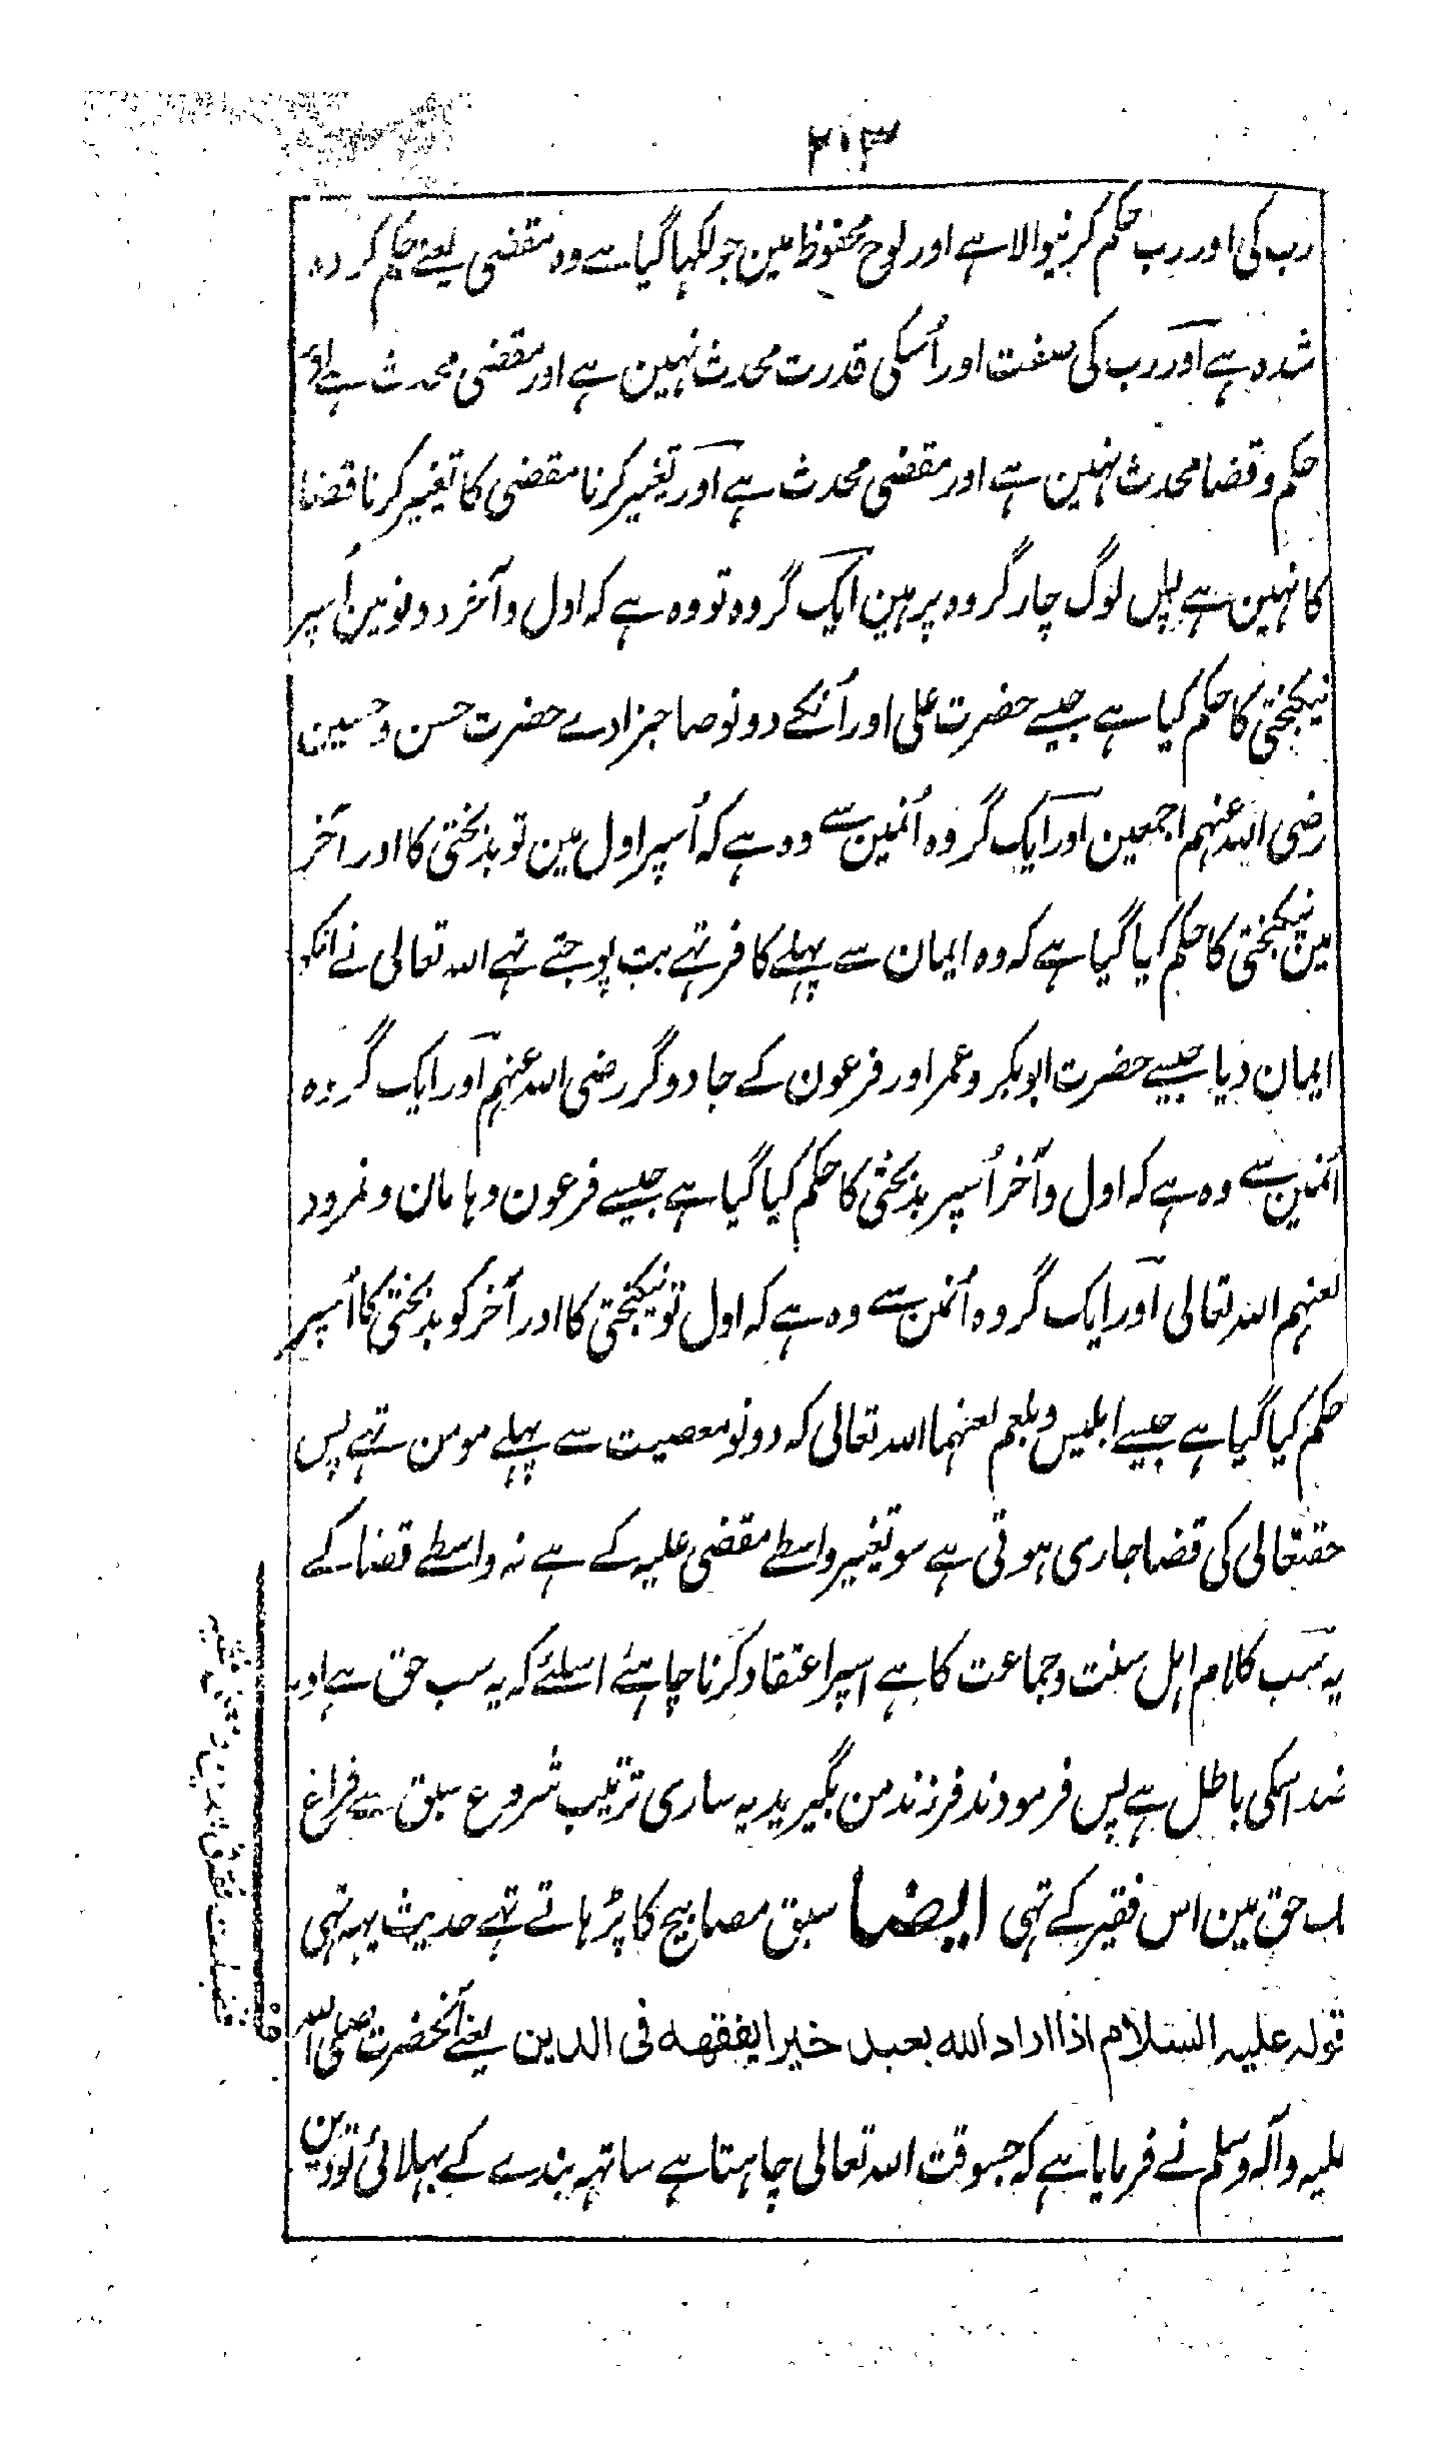 ۲۰۳
رب کی اور رب حکم کرنیوالا ہے اور لوح محفوظ مین جو لکہا گیا ہے وہ مقضی یعنے حکم کردہ
شدہ ہے اور رب کی صفت اور اُسکی قدرت محدث نہین ہے اور مقضی محدث ہے اور
حکم و قضا محدث نہین ہے اور مقضی محدث ہے اور تغیر کرنا مقضی کا تغیر کرنا قضا
کا نہین ہے پس لوگ چار گروہ پر ہین ایک گروہ تو وہ ہے کہ اول و آخر دونو مین اُسپر
نیکبختی کا حکم کیا ہے جیسے حضرت علی اور اُنکے دونو صاحبزادے حضرت حسن و حسین
رضی اللہ عنہم اجمعین اور ایک گروہ اُنمین سے وہ ہے کہ اُسپر اول مین تو بدبختی کا اور آخر
مین نیکبختی کا حکم کیا گیا ہے کہ وہ ایمان سے پہلے کافر تہے بت پوجتے تہے اللہ تعالی نے انکو
ایمان دیا جیسے حضرت ابوبکر و عمر اور فرعون کے جادوگر رضی اللہ عنہم اور ایک گروہ
اُنمین سے وہ ہے کہ اول و آخر اُسپر بدبختی کا حکم کیا گیا ہے جیسے فرعون و ہامان و نمرود
لعنہم اللہ تعالی اور ایک گروہ اُنمن سے وہ ہے کہ اول تو نیکبختی کا اور آخر کو بدبختی کا اُسپر
حکم کیا گیا ہے جیسے ابلیس و بلعم لعنہما اللہ تعالی کہ دونو معصیت سے پہلے مومن تہے پس
حقتعالی کی قضا جاری ہوتی ہے سو تغییر واسطے مقضی علیہ کے ہے نہ واسطے قضا کے
یہ سب کلام اہل سنت و جماعت کا ہے اسپر اعتقاد کرنا چاہئے اسلئے کہ یہ سب حق ہے اور
ضد اسکی باطل ہے پس فرمودند فرزند من بگیرید یہ ساری ترتیب شروع سبق سے فراغ
تک حق مین اس فقیر کے تہی ایضا سبق مصابیح کا پڑہاتے تہے حدیث یہہ تہی
قولہ علیہ السلام اذا اراد الله بعبد خیرا یفقهه فی الدین یعنے آنحضرت صلی اللہ
علیہ وآلہ وسلم نے فرمایا ہے کہ جسوقت اللہ تعالی چاہتا ہے ساتہہ بندے کے بہلائی تو دین